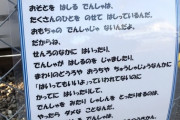 おそとを はしる でんしゃは、
たくさんのひとを のせて はしっているんだ。
おもちゃの でんしゃじゃ ないんだよ。
だからは、
せんろのなかに はいったり、
でんしゃが はしるのを じゃましたり、
まわりのどうろや おうちや ちゅうしゃじょうなんかに
「はいってもいいよ」っていわれてないのに
かってに はいったりして、
でんしゃを みたり しゃしんを とったりするのは、
やったら ダメな ことなんだ。